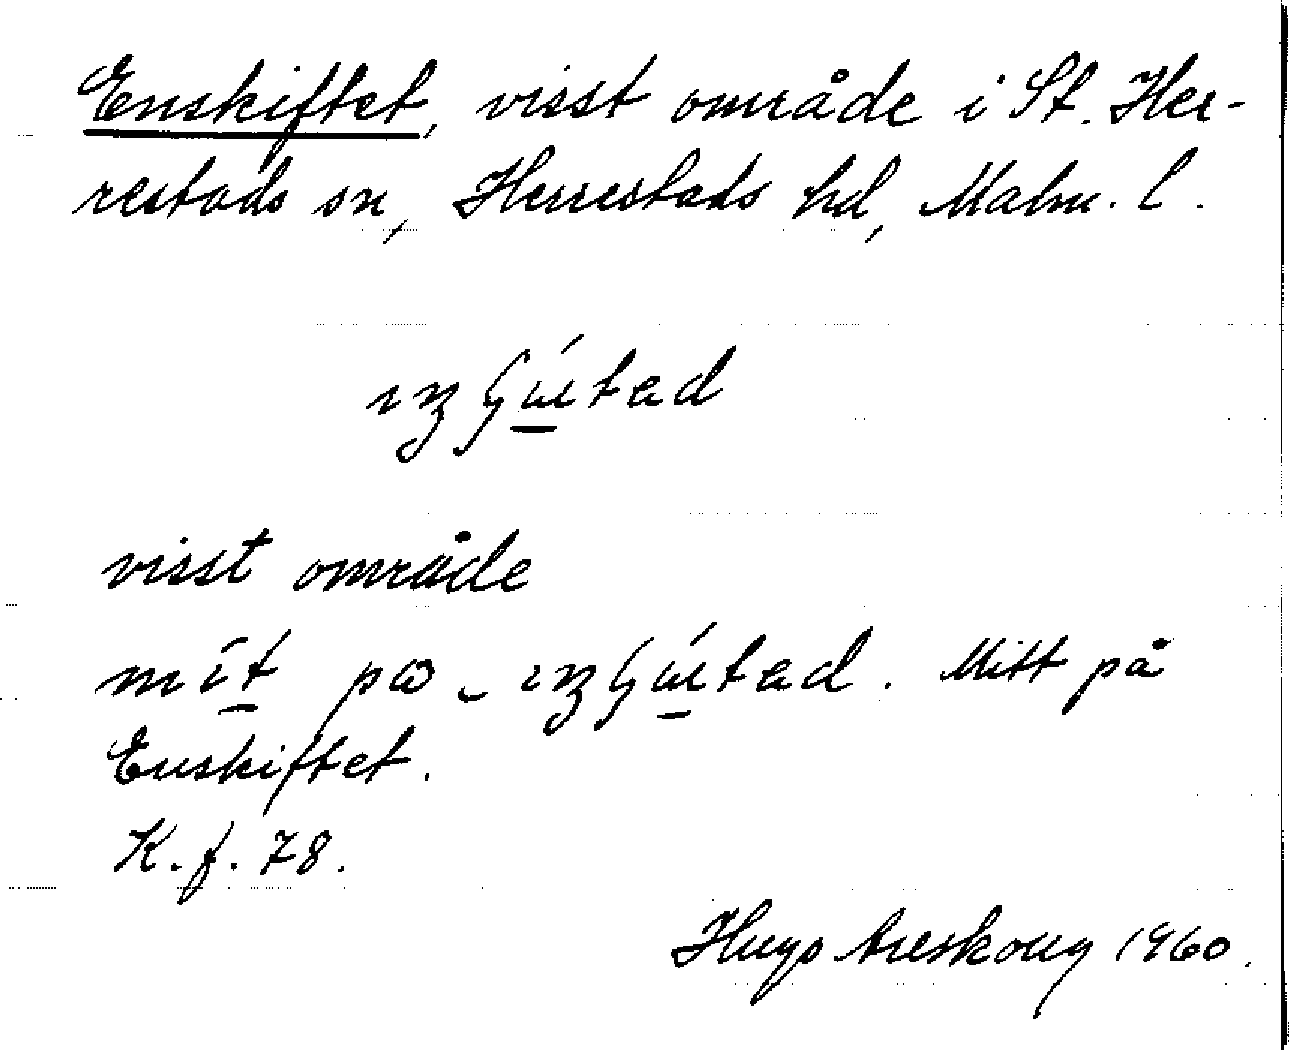 Enskiftet, visst område i St. Her-
restads sn, Herrestads hd, Malm. l.
visst område
Mitt på
Enskiftet.
K. f. 78.
Hugo Areskoug 1960.